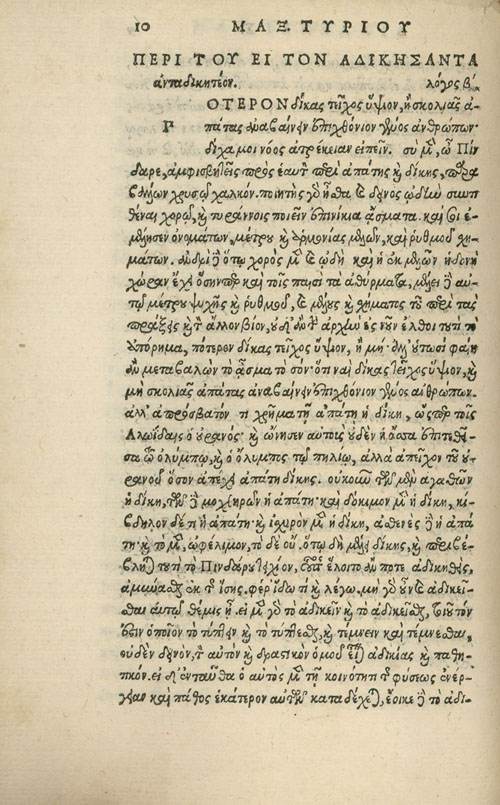 10 ΜΑΞ. ΤΥΡΙΟΥ
ΠΕΡΙ ΤΟΥ ΕΙ ΤΟΝ ΑΔΙΚΗΣΑΝΤΑ
ἀνταδικητέον. λόγος β΄.
ΟΤΕΡΟΝ δίκας τεῖχος ὕψιον, ἢ σκολιᾶς ἀ-
πάτας ἀναβαίνειν ἐπιχθόνιον γένος ἀνθρώπων·
δίχα μοι νόος ἀτρέκειαν εἰπεῖν. σὺ μὲν, ὦ Πίν
δαρε, ἀμφισβητεῖς πρὸς ἑαυτὸν περὶ ἀπάτης καὶ δίκης, παρα
βάλλων χρυσῷ χαλκόν. ποιητὴς γὰρ ἦσθα καὶ δεινὸς
χορῷ, καὶ τυράννοις ποιεῖν ἐπινίκια ἄσματα. καὶ σοι ἐ-
μέλησεν ὀνομάτων, μέτρου καὶ ἁρμονίας μελῶν, καὶ ῥυθμοῦ χη-
μάτων. ἀνδρὶ δὲ ὅτῳ χορὸς μὲν καὶ ᾠδὴ καὶ ἡ ἐκ μελῶν ἡδονὴ
χώραν ἔχει ὅσηνπερ καὶ τοῖς παισὶ τὰ ἀθύρματα, μέλει δὲ αὐ-
τῷ μέτρου ψυχῆς καὶ ῥυθμοῦ, καὶ μέλους καὶ χήματος τοῦ περὶ τὰς
πράξεις καὶ τὸν ἄλλον βίον, οὐδ' ἂν τὴν ἀρχὴν ἐς νοῦν ἔλθοι τουτὶ τὸ
ἀπόρημα, πότερον δίκας τεῖχος ὕψιον, ἢ μή· ἀλλ' οὑτωσὶ φαίη
ἂν μεταβαλὼν τὸ ἆσμα τὸ σόν· ὅτι ναὶ δίκας τεῖχος ὕψιον, καὶ
μὴ σκολιᾶς ἀπάτας ἀναβαίνειν ἐπιχθόνιον γένος ἀνθρώπων.
ἀλλ' ἀπρόσβατόν τι χρῆμα τῇ ἀπάτῃ ἡ δίκη, ὥσπερ τοῖς
Ἀλωΐδαις ὁ οὐρανός· καὶ ὤνησεν αὐτοὺς οὐδὲν ἡ ὄσσα ἐπιτεθεῖ-
σα τῷ ὀλύμπῳ, καὶ ὁ ὄλυμπος τῷ πηλίῳ, ἀλλὰ ἀπεῖχον τοῦ οὐ-
ρανοῦ ὅσον ἀπέχει ἀπάτη δίκης. οὐκοῦν τῶν μὲν ἀγαθῶν
ἡ δίκη, τῶν δὲ μοχθηρῶν ἡ ἀπάτη· καὶ δόκιμον μὲν ἡ δίκη, κί-
βδηλον δέ τι ἡ ἀπάτη· καὶ ἰσχυρὸν μὲν ἡ δίκη, ἀσθενὲς δὲ ἡ ἀπά
τη· καὶ τὸ μὲν, ὠφέλιμον, τὸ δὲ οὔ.
τουτὶ τὸ Πινδάρου τεῖχος,
ἀμύνασθαι ἐκ τῆς ἴσης. φέρ' ἴδω τί καὶ λέγω. μὴ γὰρ οὐδὲ ἀδικεῖ-
σθαι αὐτῷ θέμις ᾖ. εἰ μὲν γὰρ τὸ ἀδικεῖν καὶ τὸ ἀδικεῖσθαι, τοιοῦτόν
ἐστιν ὁποῖον τὸ τύπτειν καὶ τὸ τύπτεσθαι, καὶ τέμνειν καὶ τέμνεσθαι,
οὐδὲν δεινὸν, τὸν αὐτὸν καὶ δραστικὸν ὁμοῦ εἶναι ἀδικίας καὶ παθη-
τικόν. εἰ δ' ἐνταῦθα ὁ αὐτὸς μὲν τῇ κοινότητι τῆς φύσεως ἐνέρ-
γειαν καὶ πάθος ἑκάτερον αὐτῶν καταδέχεται, ἔοικε δὲ τὸ ἀδι-